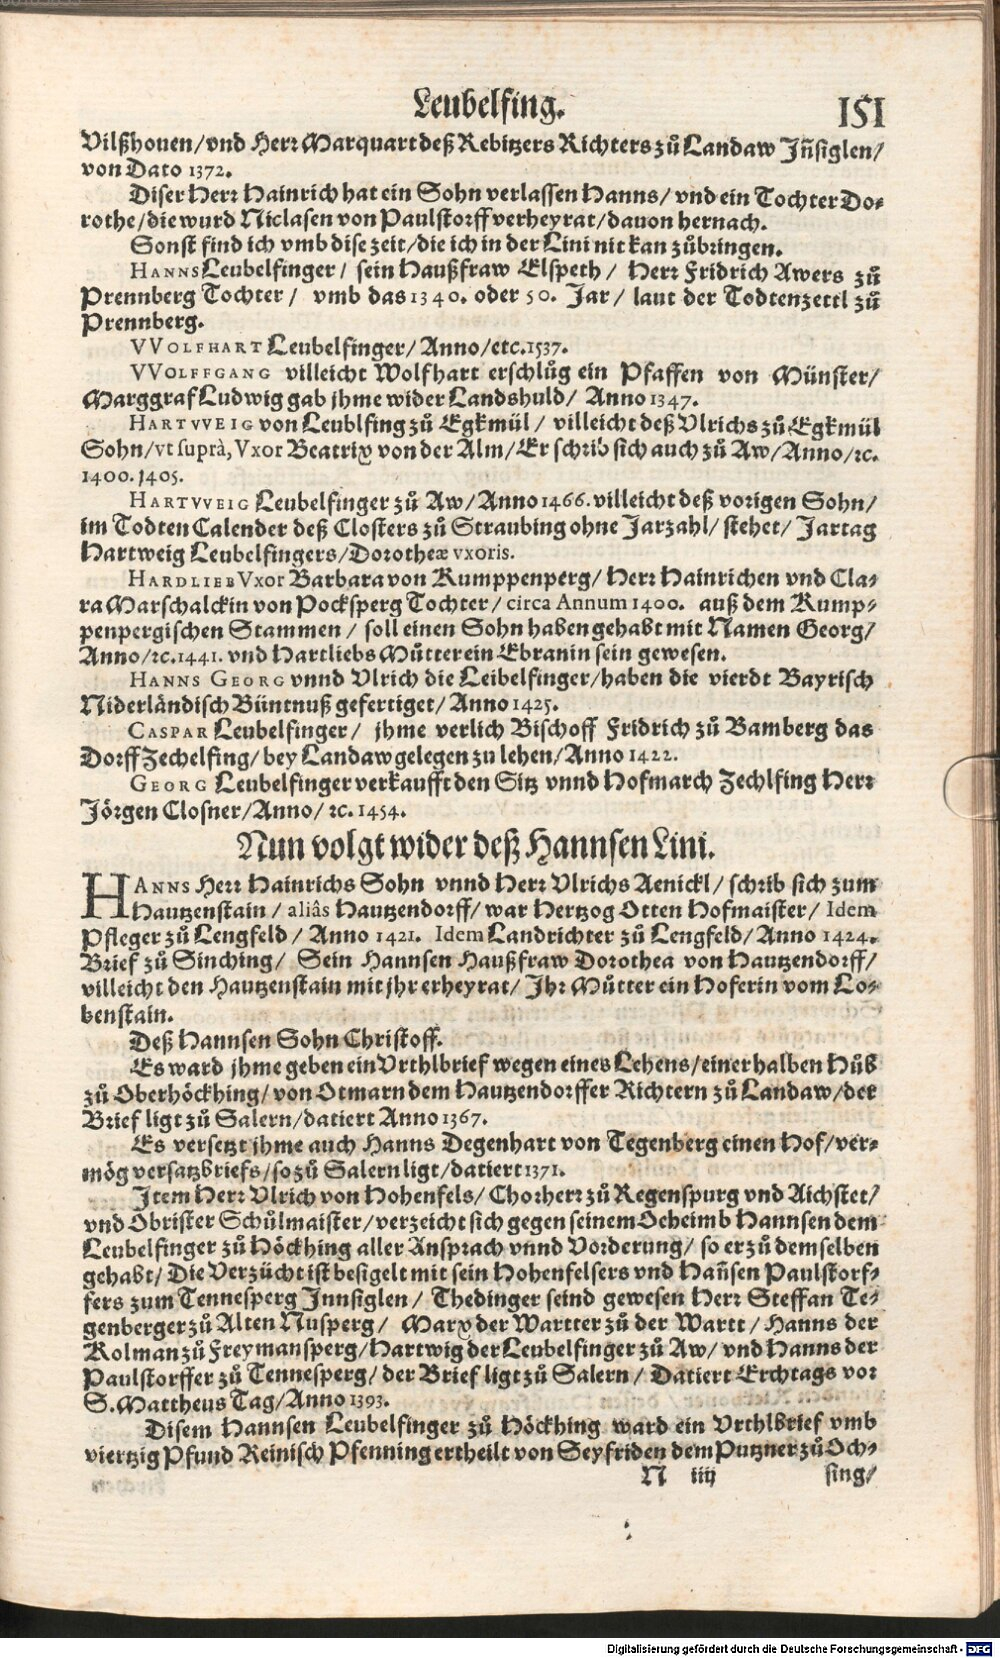 Leubelfing. 151
Vilßhouen/vnd Herr Marquart deß Rebitzers Richters zů Landaw Jn̄siglen/
von Dato 1372.
Diser Herr Hainrich hat ein Sohn verlassen Hanns/vnd ein Tochter Do-
rothe/die wurd Niclasen von Paulstorff verheyrat/dauon hernach.
Sonst find ich vmb dise zeit/die ich in der Lini nit kan zůbringen.
HANNS Leubelfinger/ sein Haußfraw Elspeth/ Herr Fridrich Awers zů
Prennberg Tochter/ vmb das 1340. oder 50. Jar/ laut der Todtenzettl zů
Prennberg.
VVOLFHART Leubelfinger/Anno/etc.1537.
VVOLFFGANG villeicht Wolfhart erschlůg ein Pfaffen von Münster/
Marggraf Ludwig gab jhme wider Landshuld/ Anno 1347.
HARTVVEIG von Leublfing zů Egkmül/ villeicht deß Vlrichs zů Egkmül
Sohn/vt suprà, Vxor Beatrix von der Alm/Er schrib sich auch zů Aw/Anno/ꝛc.
1400. 1405.
HARTVVEIG Leubelfinger zů Aw/Anno 1466. villeicht deß vorigen Sohn/
im Todten Calender deß Closters zů Straubing ohne Jarzahl/ stehet/ Jartag
Hartweig Leubelfingers/Dorotheæ vxoris.
HARDLIEB Vxor Barbara von Rumppenperg/Herr Hainrichen vnd Cla-
ra Marschalckin von Pocksperg Tochter/circa Annum 1400. auß dem Rump-
penpergischen Stammen/ soll einen Sohn haben gehabt mit Namen Georg/
Anno/ꝛc.1441. vnd Hartliebs Můtter ein Ebranin sein gewesen.
HANNS GEORG vnnd Vlrich die Leibelfinger/haben die vierdt Bayrisch
Niderländisch Büntnuß gefertiget/Anno 1425.
CASPAR Leubelfinger/ jhme verlich Bischoff Fridrich zů Bamberg das
Dorff Zechelfing/bey Landaw gelegen zu lehen/Anno 1422.
GEORG Leubelfinger verkaufft den Sitz vnnd Hofmarch Zechlfing Herr
Jörgen Closner/Anno/ꝛc. 1454.
Nun volgt wider deß Hannsen Lini.
HANNS Herr Hainrichs Sohn vnnd Herr Vlrichs Aenickl/ schrib sich zum
Hautzenstain/aliâs Hautzendorff/war Hertzog Otten Hofmaister/Idem
Pfleger zů Lengfeld/ Anno 1421. Idem Landrichter zů Lengfeld/Anno 1424.
Brief zů Sinching/ Sein Hannsen Haußfraw Dorothea von Hautzendorff/
villeicht den Hautzenstain mit jhr erheyrat/ Jhr Můtter ein Hoferin vom Lo-
benstain.
Deß Hannsen Sohn Christoff.
Es ward jhme geben ein Vrthlbrief wegen eines Lehens/einer halben Hůb
zů Oberhöckhing/von Otmarn dem Hautzendorffer Richtern zů Landaw/der
Brief ligt zů Salern/datiert Anno 1367.
Es versetzt jhme auch Hanns Degenhart von Tegenberg einen Hof/ver-
mög versatzbriefs/so zů Salern ligt/datiert 1371.
Jtem Herr Vlrich von Hohenfels/Chorherr zů Regenspurg vnd Aichstet/
vnd Obrister Schůlmaister/verzeicht sich gegen seinem Oeheimb Hannsen dem
Leubelfinger zů Höckhing aller Ansprach vnnd Vorderung/ so er zů demselben
gehabt/Die Verzücht ist besigelt mit sein Hohenfelsers vnd Han̄sen Paulstorf-
fers zum Tennesperg Jnnsiglen/ Thedinger seind gewesen Herr Steffan Te-
genberger zů Alten Nusperg/ Marx der Wartter zů der Wartt/Hanns der
Kolman zů Freymansperg/Hartwig der Leubelfinger zů Aw/vnd Hanns der
Paulstorffer zů Tennesperg/der Brief ligt zů Salern/ Datiert Erchtags vor
S. Mattheus Tag/Anno 1393.
Disem Hannsen Leubelfinger zů Höckhing ward ein Vrthlbrief vmb
viertzig Pfund Reinisch Pfenning ertheilt von Seyfriden dem Putzner zů Och-
N iiij sing/
Digitalisierung gefördert durch die Deutsche Forschungsgemeinschaft - DFG